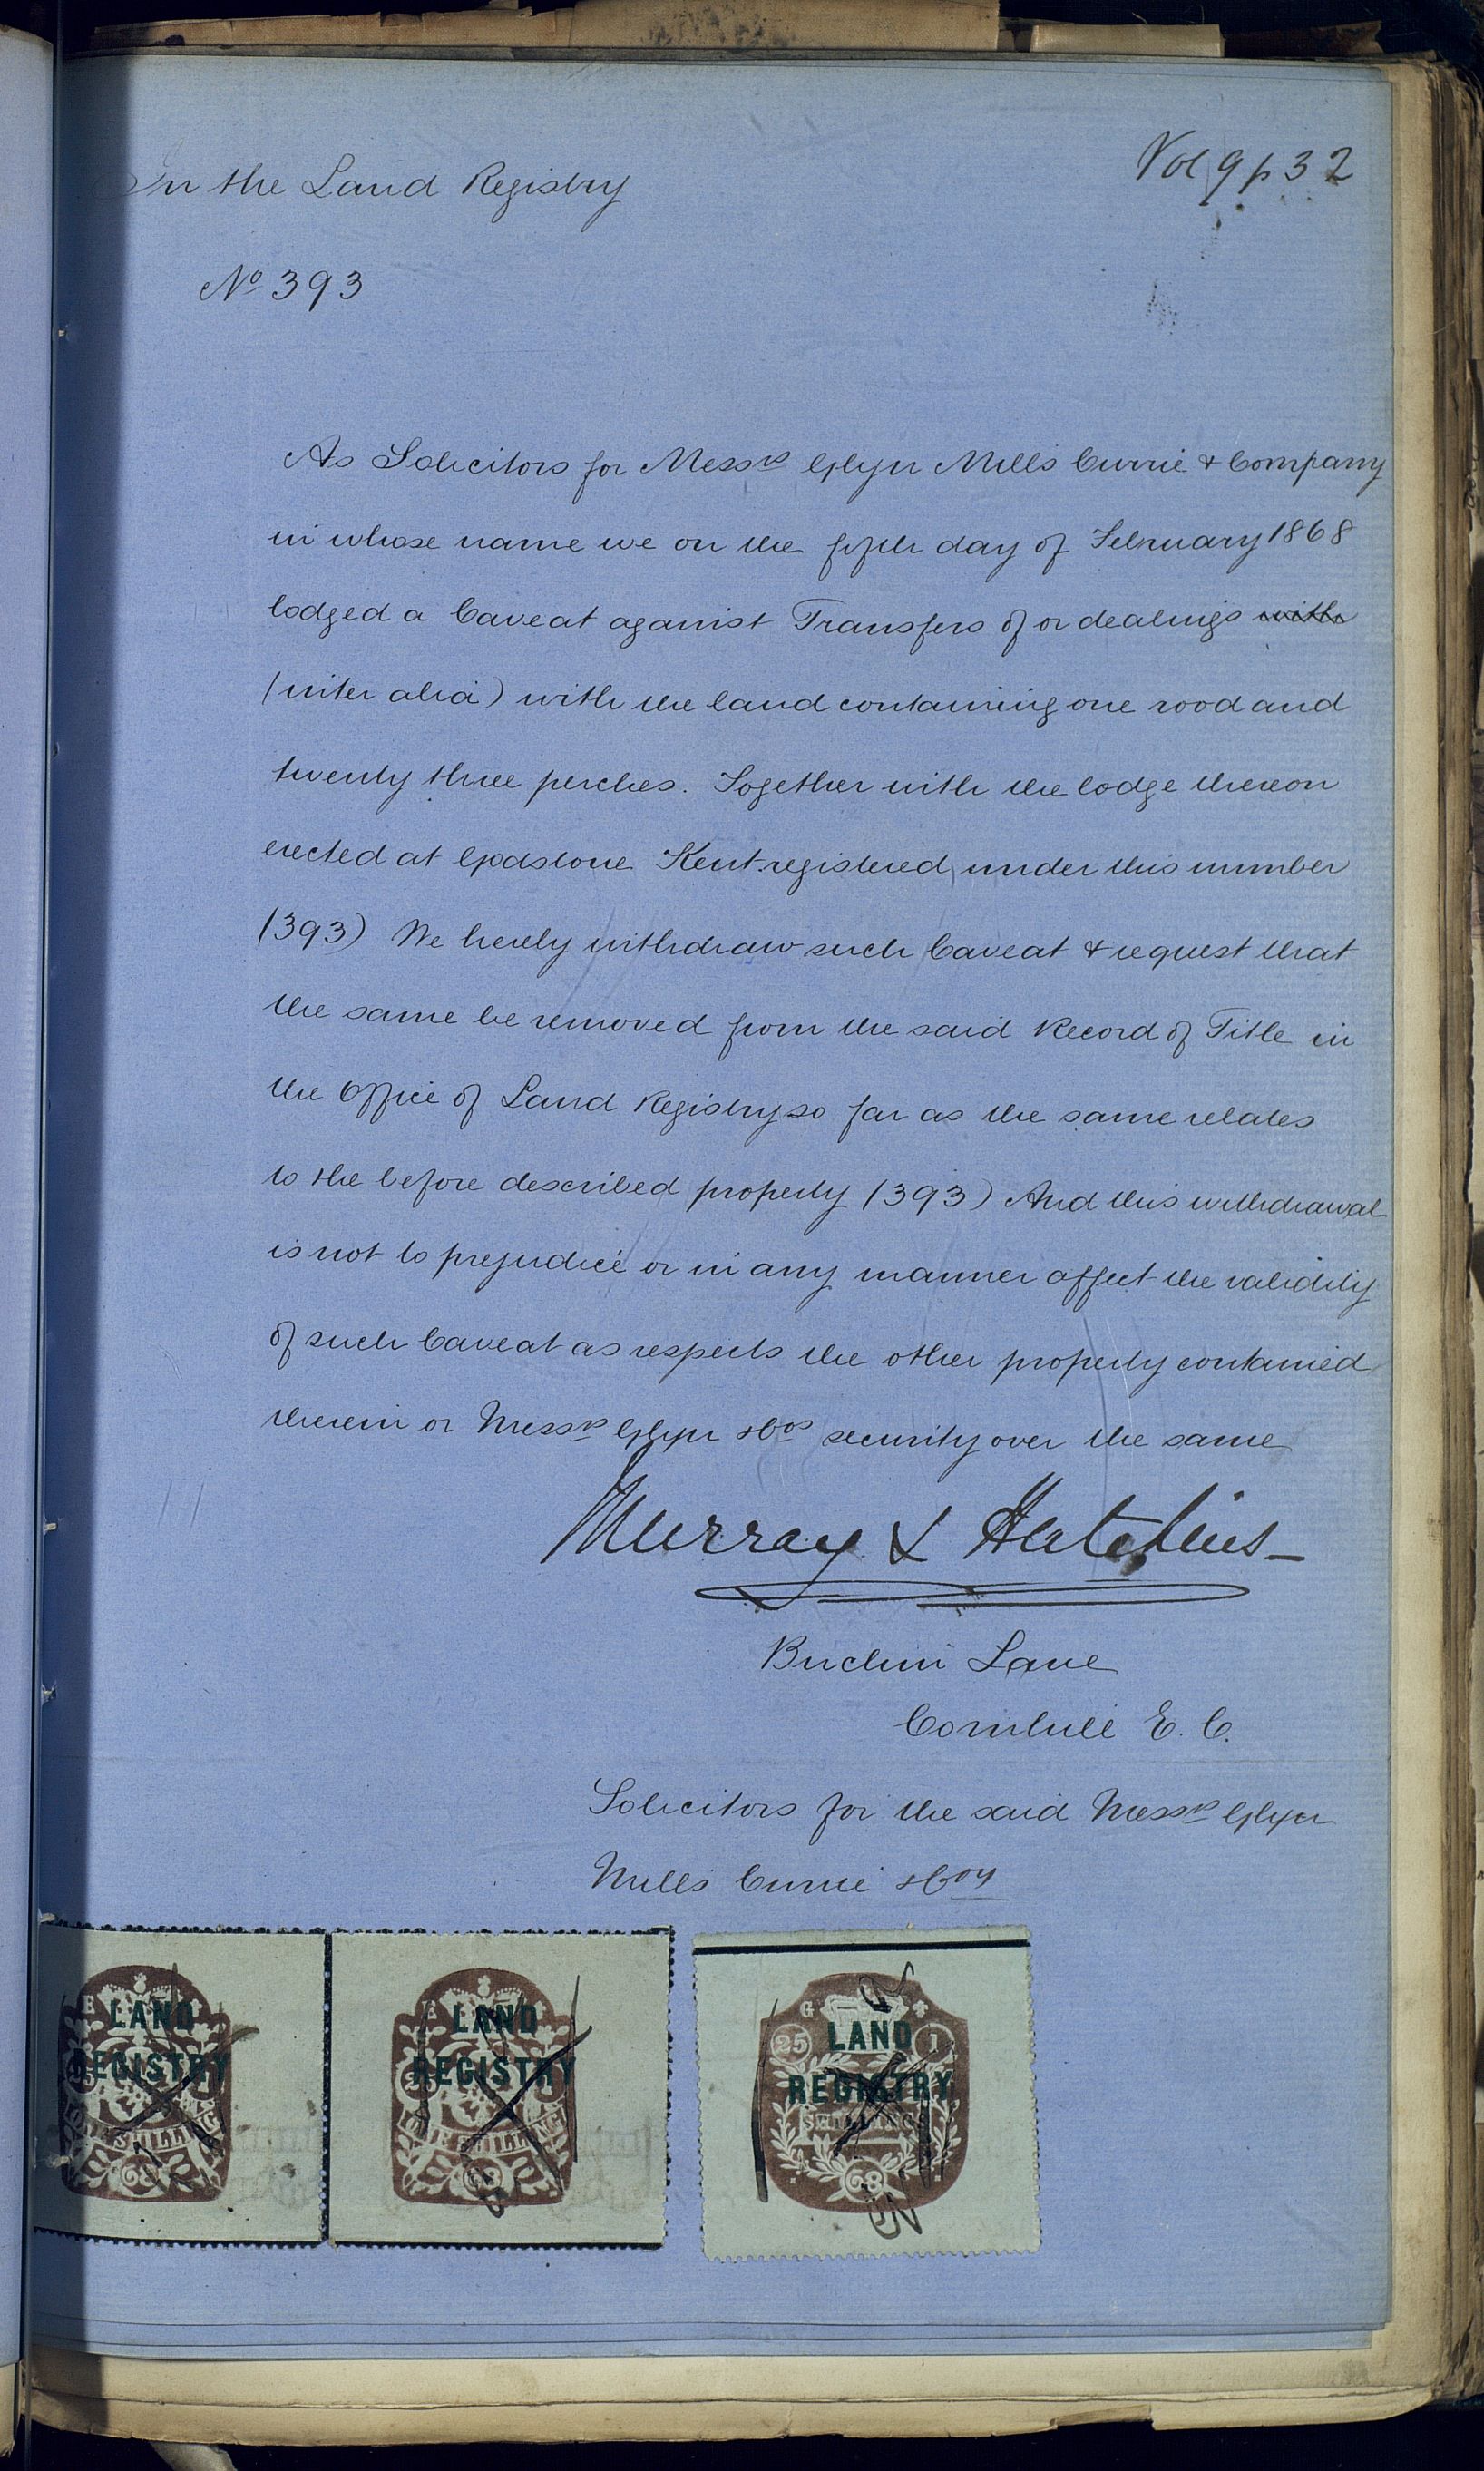 In the Land Registry
Vol 9 p 32
No 393
As Solicitors for Messrs Glyn Mills Currie & Company
in whose name we on the fifth day of February 1868
lodged a Caveat against Transfers of or dealings with
(inter alia) with the land containing one rood and
twenty three perches. Together with the lodge thereon
erected at Godstone Kent registered under this number
(393) We hereby withdraw such Caveat & request that
the same be removed from the said Record of Title in
the Office of Land Registry so far as the same relates
to the before described property (393) And this withdrawal
is not to prejudice or in any manner affect the validity
of such Caveat as respects the other property contained
therein or Messrs Glyn & Cos security over the same
Murray & Hutchins
Birchin Lane
Cornhill E. C.
Solicitors for the said Messrs Glyn
Mills Currie & Coy
LAND
REGISTRY
ONE SHILLING
LAND
REGISTRY
ONE SHILLING
68
G
25
1
LAND
REGISTRY
SHILLINGS
68